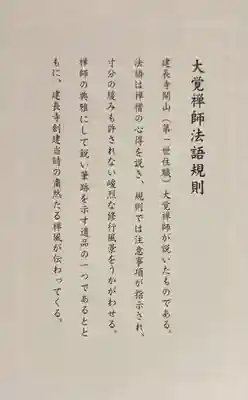 大覚禅師法語規則
建長寺開山（第一世住職）大覚禅師が説いたものである。
法語は禅僧の心得を説き、規則では注意事項が指示され、
寸分の緩みも許されない峻烈な修行風景をうかがわせる。
禅師の典雅にして鋭い筆跡を示す遺品の一つであるとと
もに、建長寺創建当時の粛然たる禅風が伝わってくる。